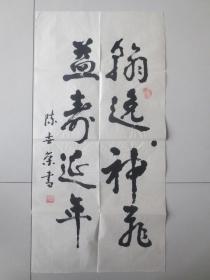 翰逸神飛
益壽延年
陈世荣書